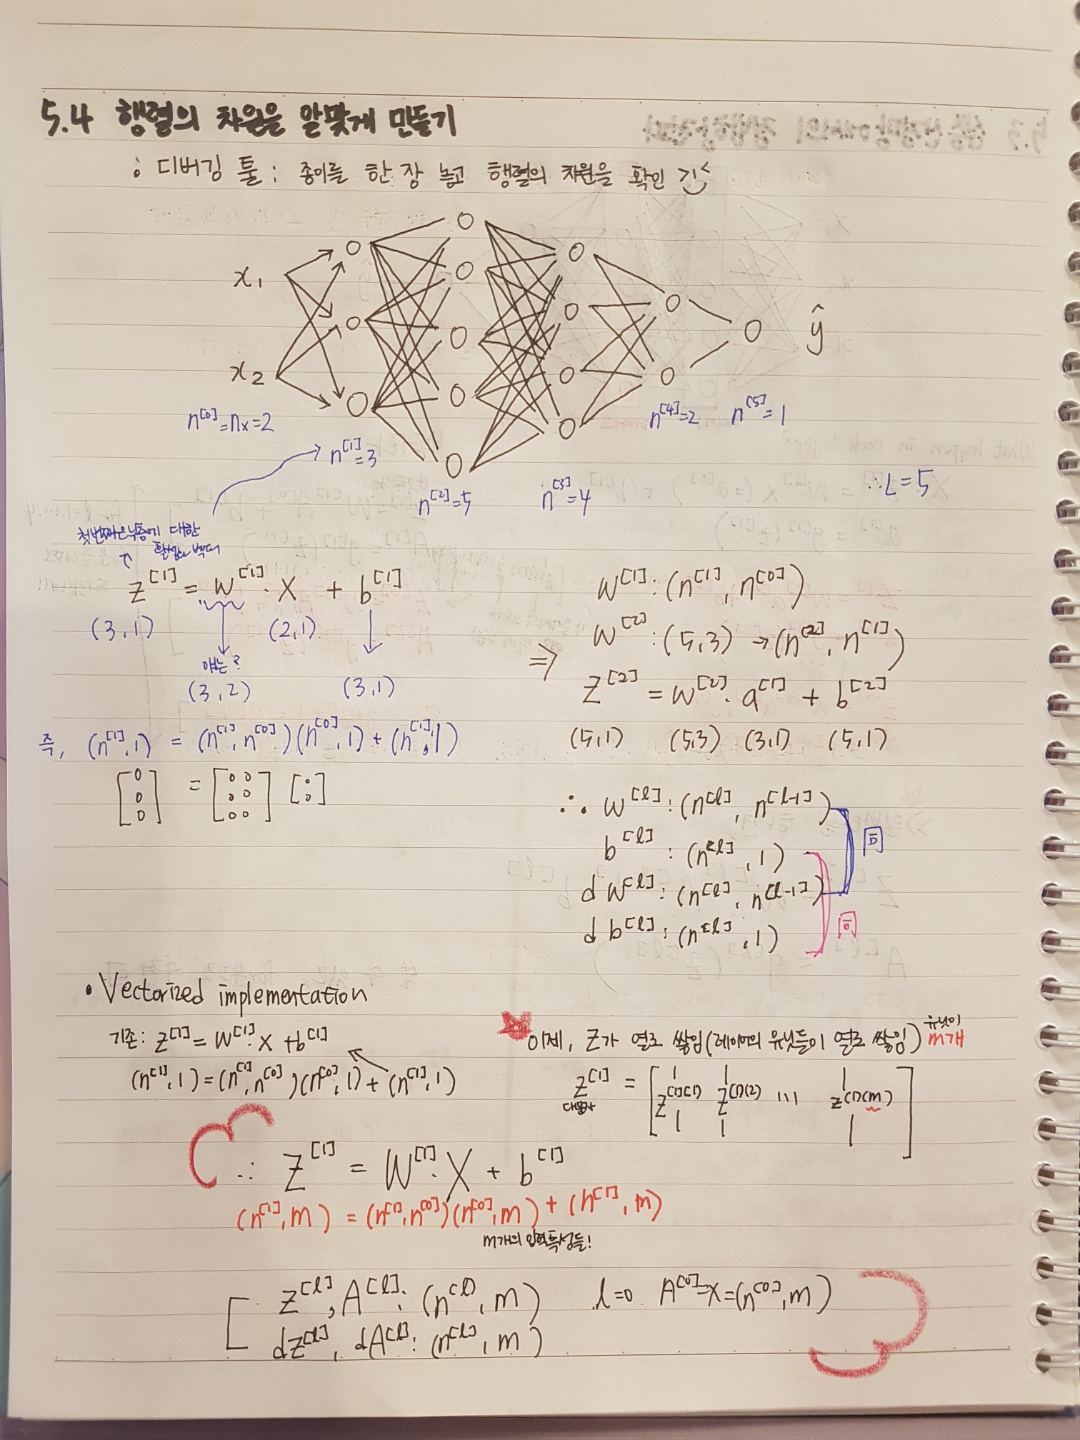 5.4 행렬의 차원을 알맞게 만들기
: 디버깅 툴 : 종이를 한 장 놓고 행렬의 차원을 확인
x₁
x₂
ŷ
n^[0]=nx=2
n^[1]=3
n^[2]=5
n^[3]=4
n^[4]=2
n^[5]=1
∴L=5
첫번째 은닉층에 대한
활성화 벡터
z^[1] = w^[1]·X + b^[1]
(3,1) (2,1)
얘는?
(3,2) (3,1)
즉, (n^[1],1) = (n^[1],n^[0])(n^[0],1)+(n^[1],1)
w^[1]:(n^[1],n^[0])
w^[2]:(5,3)→(n^[2],n^[1])
⇒ z^[2] = w^[2]·a^[1] + b^[2]
(5,1) (5,3) (3,1) (5,1)
∴ w^[l]:(n^[l], n^[l-1])
b^[l]:(n^[l],1)
dw^[l]:(n^[l],n^[l-1])
db^[l]:(n^[l],1)
同
同
• Vectorized implementation
기존: z^[1]=w^[1]·x+b^[1]
(n^[1],1)=(n^[1],n^[0])(n^[0],1)+(n^[1],1)
이제, Z가 열로 쌓임(레이어의 유닛들이 열로 쌓임) 유닛이 m개
Z^[1] = [z^[1](1) z^[1](2) ··· z^[1](m)]
대문자
∴ Z^[1] = W^[1]·X + b^[1]
(n^[1],m) = (n^[1],n^[0])(n^[0],m)+(n^[1],m)
m개의 입력특성들!
Z^[l], A^[l]: (n^[l],m) l=0 A^[0]=X=(n^[0],m)
dZ^[l], dA^[l]: (n^[l],m)